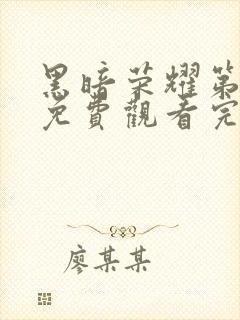 黑暗荣耀第
免費觀看完
廖某某